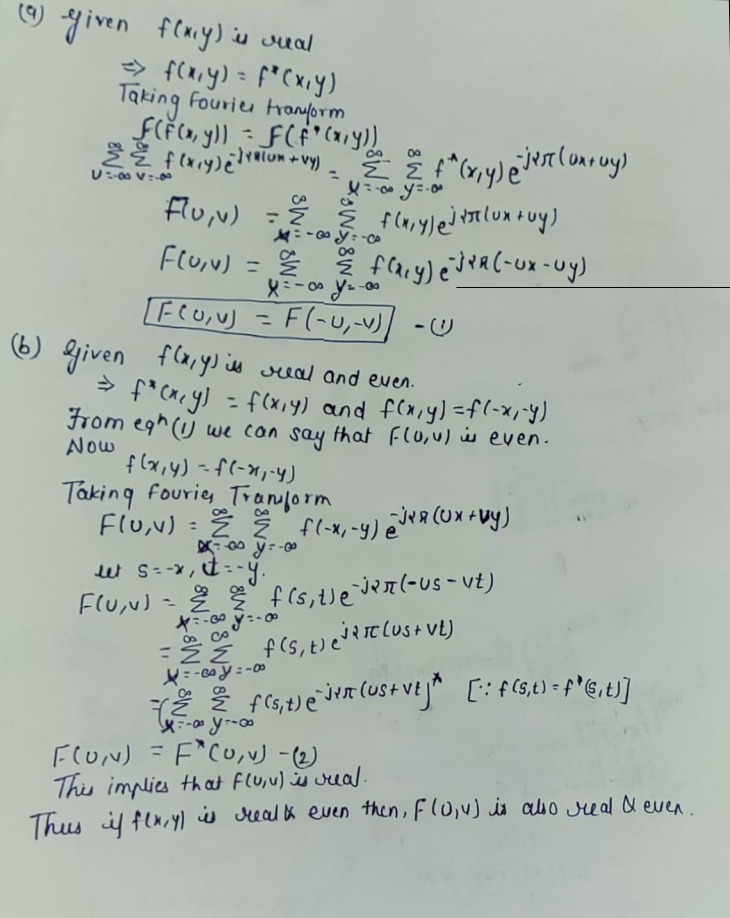 (a) Given f(x,y) is real
⇒ f(x,y) = f*(x,y)
Taking Fourier tranform
F(f(x,y)) = F(f*(x,y))
∞Σu=-∞ ∞Σv=-∞ f(x,y)e^-j2π(ux+vy) = ∞Σx=-∞ ∞Σy=-∞ f*(x,y)e^-j2π(ux+vy)
F(u,v) = ∞Σx=-∞ ∞Σy=-∞ f(x,y)e^j2π(ux+vy)
F(u,v) = ∞Σx=-∞ ∞Σy=-∞ f(x,y)e^-j2π(-ux-vy)
F(u,v) = F(-u,-v) -(1)
(b) Given f(x,y) is real and even.
⇒ f*(x,y) = f(x,y) and f(x,y)=f(-x,-y)
From eqn(1) we can say that F(u,v) is even.
Now
f(x,y) = f(-x,-y)
Taking Fourier Transform
F(u,v) = ∞Σx=-∞ ∞Σy=-∞ f(-x,-y) e^-j2π(ux+vy)
let s=-x, t=-y.
F(u,v) = ∞Σx=-∞ ∞Σy=-∞ f(s,t)e^-j2π(-us-vt)
= ∞Σx=-∞ ∞Σy=-∞ f(s,t)e^j2π(us+vt)
=(∞Σx=-∞ ∞Σy=-∞ f(s,t)e^-j2π(us+vt)* [∵ f(s,t)=f*(s,t)]
F(u,v) = F*(u,v) -(2)
This implies that F(u,v) is real.
Thus if f(x,y) is real & even then, F(u,v) is also real & even.